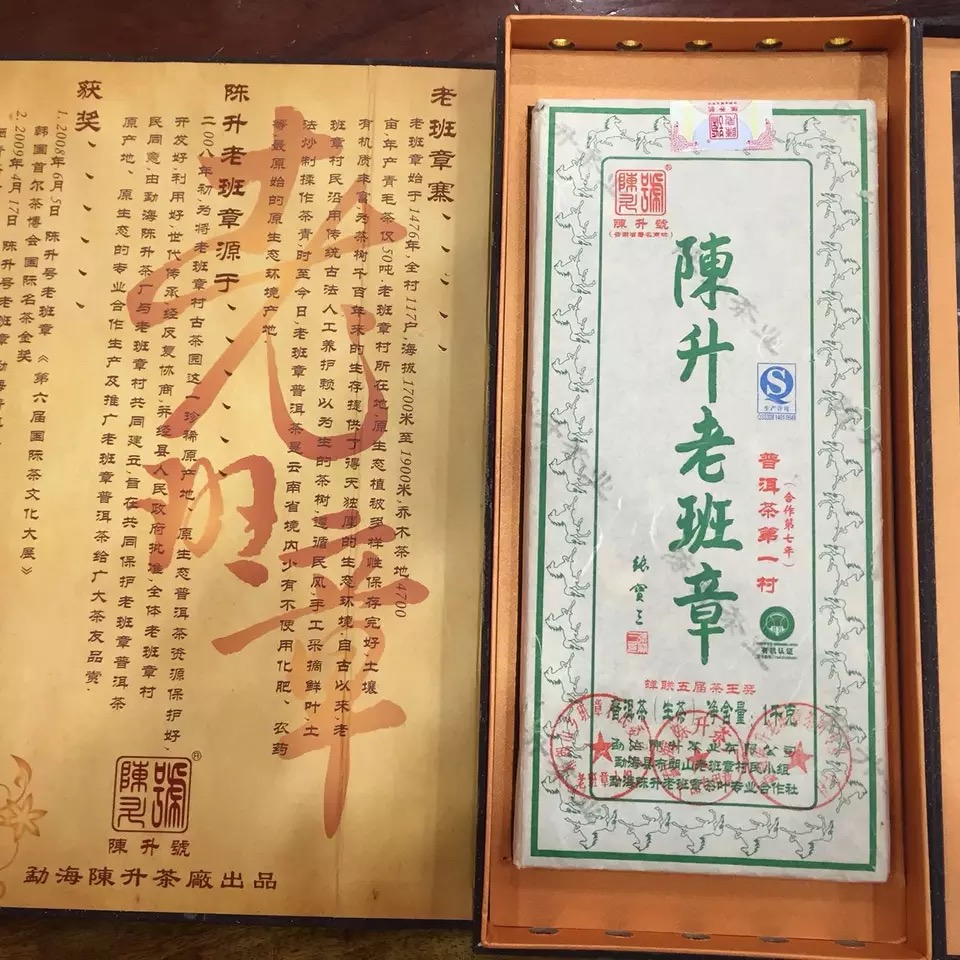 老班章寨
老班章始于1476年,全村117户,海拔1700米至1900米,乔木茶地4700
亩,年产青毛茶仅50吨,老班章村所在地,原生态植被多样性保存完好,土壤
有机质丰富,为茶树千百年来的生存提供了得天独厚的生态环境,自古以来,老
班章村民沿用传统古法人工养护赖以为生的茶树,遵循民风,手工采摘鲜叶,土
法炒制揉作茶青,时至今日,老班章普洱茶是云南省境内少有不使用化肥、农药
等最原始的原生态环境产地
陈升老班章源于
二00八年初,为将老班章村古茶园这一珍稀原产地、原生态普洱茶资源保护好,
开发好,利用好,世代传承,经反复协商,并经县人民政府批准,全体老班章村
民同意,由勐海陈升茶厂与老班章村共同建立,旨在共同保护老班章普洱茶
原产地、原生态的专业合作生产及推广老班章普洱茶给广大茶友品赏.
获奖
1.2008年6月5日 陈升号老班章《第六届国际茶文化大展》
韩国首尔茶博会国际名茶金奖
2.2009年4月17日 陈升号老班章
老班章
陳升號
®
陳升號
勐海陳升茶廠出品
陳升號
®
陳升號
(云南省著名商标)
陳升老班章
張寶三
S
生产许可
普洱茶第一村
(合作第七年)
有机认证
蝉联五届茶王奖
普洱茶(生茶) 净含量:1千克
勐海陳升茶业有限公司
勐海县布朗山老班章村民小组
勐海陈升老班章茶叶专业合作社